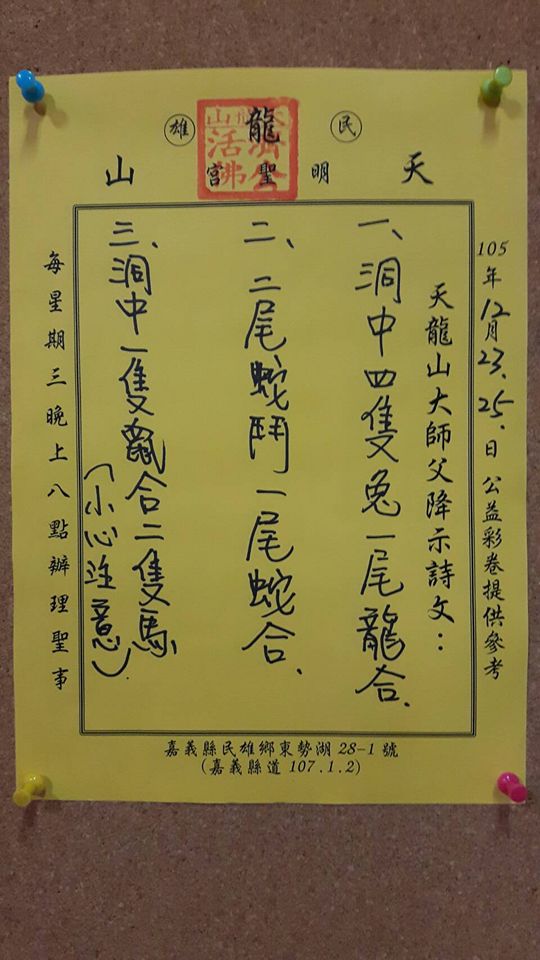 民雄
天龍山
明聖宮
天龍山
濟公
活佛
105年12月23.25.日公益彩卷提供參考
天龍山大師父降示詩文：
一、洞中四隻兔一尾龍合.
二、二尾蛇鬥一尾蛇合.
三、洞中一隻鼠合二隻馬
(小心注意).
每星期三晚上八點辦理聖事
嘉義縣民雄鄉東勢湖28-1號
(嘉義縣道107.1.2)